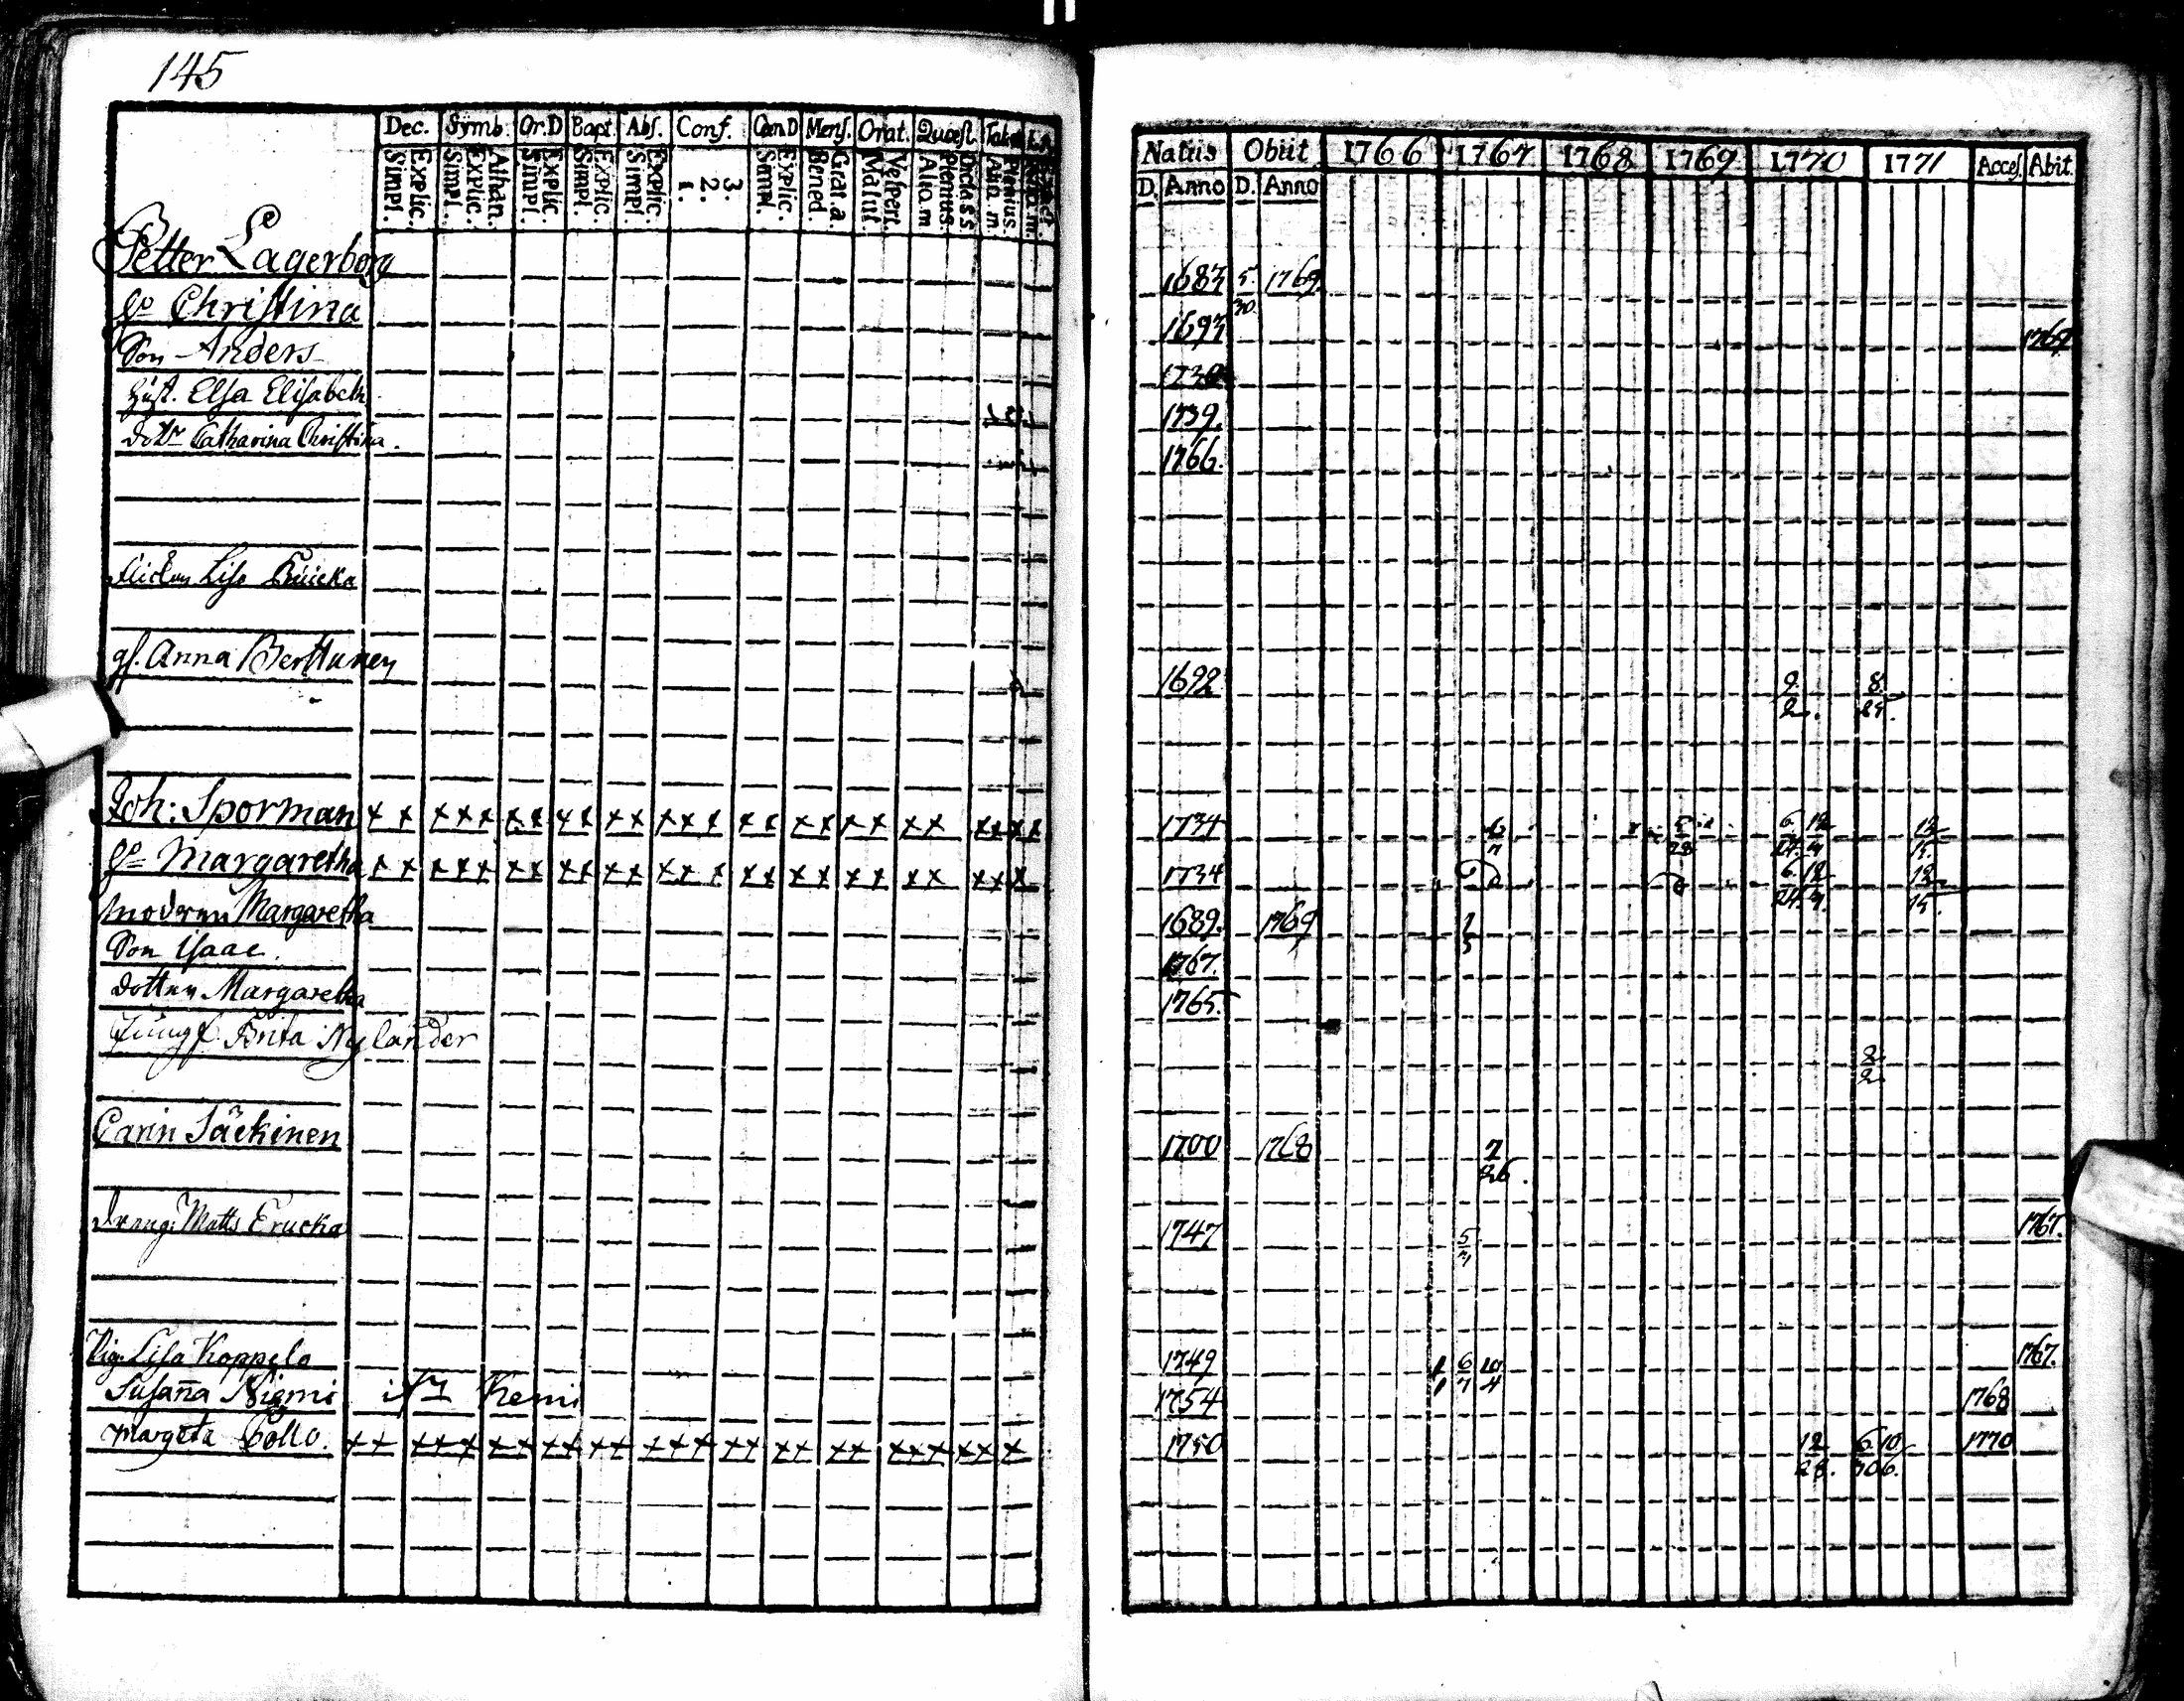 145
Dec. Symb. Or.D Bapt. Abs. Conf. Cœn D Mens. Orat. Quæst.
Simpl. Explic. Simpl. Explic. Athan. Simpl. Explic. Simpl. Explic. Simpl. Explic. 1. 2. 3. Simpl. Explic. Bened. Grat. a. Matut. Vespert. Alio m Plenius.
Petter Lagerborg
h° Christina
Son Anders
hust. Elsa Elisabeth
dottr Catharina Christina.
flickan Lisa
gl. Anna Berttunen
Joh: Sporman x x x x x x x x x x x x x x x x x x x x x x x x x
h° Margaretha x x x x x x x x x x x x x x x x x x x x x x x x
modren Margaretha
Son Isaac.
dottren Margaretha
Jungf. Brita Nylander
Carin Säckinen
dräng: Matts Erucka
Pig. Lisa Koppelo
Susanna Niemi ifrn Kemi
Margeta Pollo. x x x x x x x x x x x x x x x x x x x x x x x x x
Natus Obiit 1766 1767 1768 1769 1770 1771 Acces. Abit.
D. Anno D. Anno
1683 5/30 1769.
1693 1767
1739.
1766.
1692 9/2. 8/25.
1734 6/7 5/28 6/24 12/9 12/15.
1734 6/24 12/9. 12/15.
1689. 1769 1/5
1767.
1765.
8/2
1700 1768 7/26.
1747 5/7 1767.
1749 1/1 6/7 10/4 1767.
1754 1768
1750 12/28. 6/30 10/6. 1770